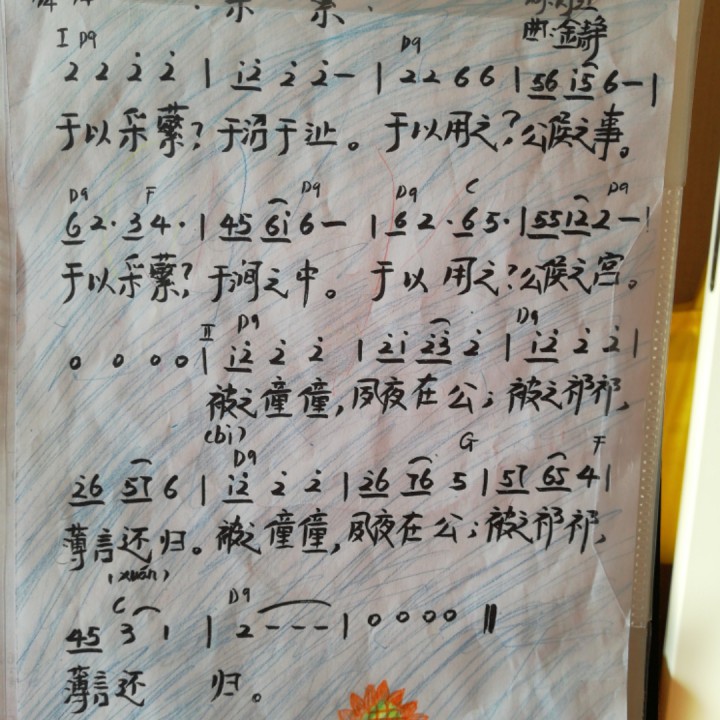 采 蘩
曲:金静
I D9 D9
2 2 2̇ 2̇ | i̇2̇ 2̇ 2̇ — | 2 2 6 6 | 56 i̇5 6 — |
于以采蘩?于沼于沚。于以用之?公侯之事。
D9 F D9 D9 C D9
6 2· 3 4· | 45 6i̇ 6 — | 6 2· 6 5· | 55 12 2 — |
于以采蘩?于涧之中。于以用之?公侯之宫。
II D9 D9
0 0 0 0 | i̇2̇ 2̇ 2̇ | 2̇i̇ 2̇3̇ 2̇ | i̇2̇ 2̇ 2̇ |
被之僮僮,夙夜在公;被之祁祁,
(bì)
D9 G F
26 57 6 | i̇2̇ 2̇ 2̇ | 26 76 5 | 57 65 4 |
薄言还归。被之僮僮,夙夜在公;被之祁祁,
(xuán)
C D9
45 3 1 | 2 - - - | 0 0 0 0 ‖
薄言还 归。